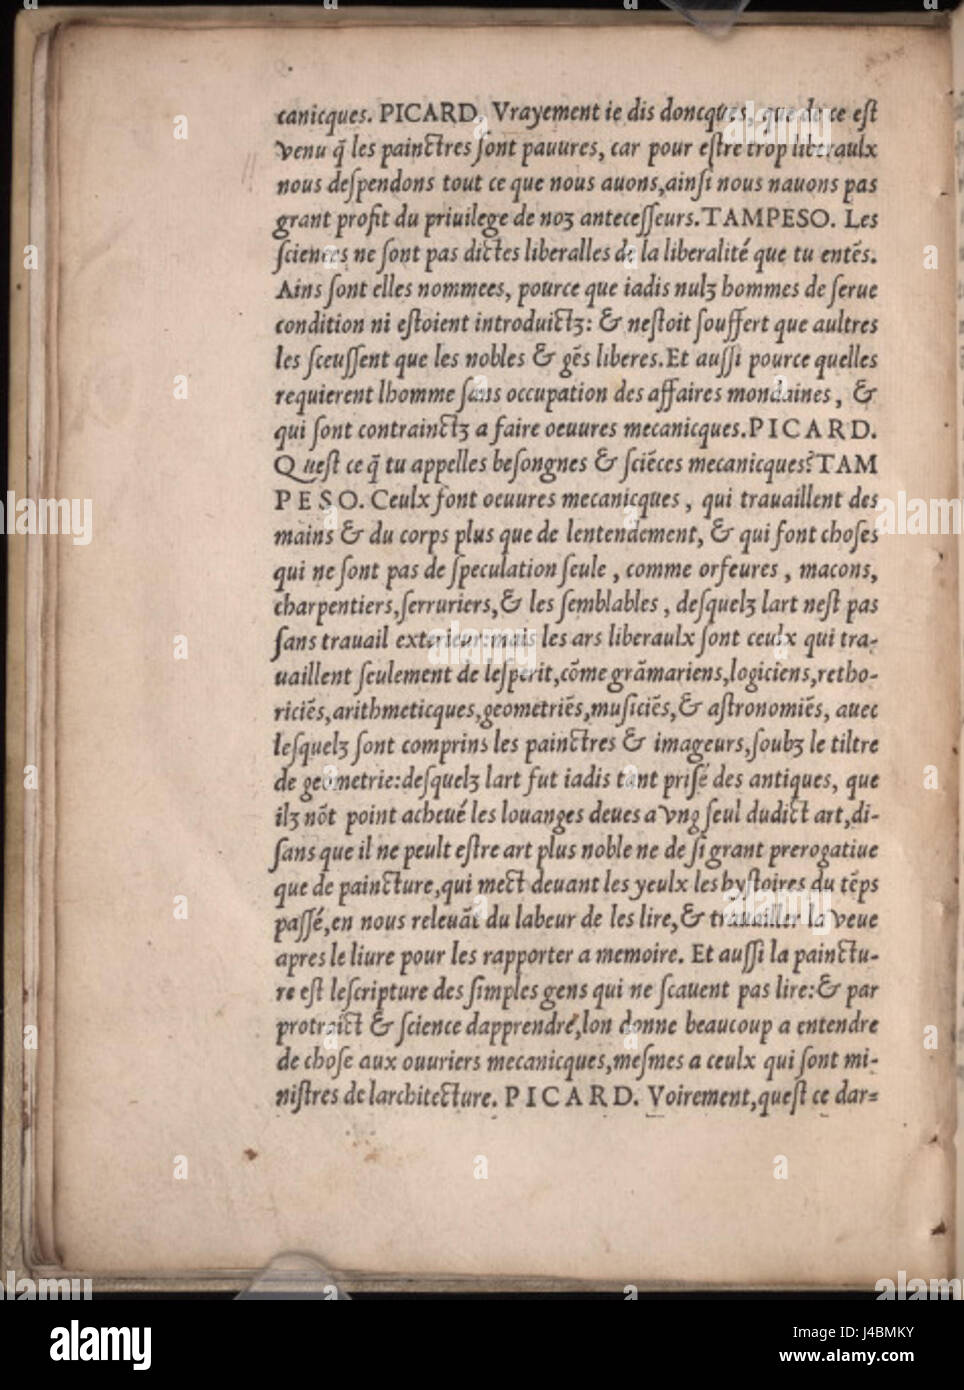 canicques. PICARD. Vrayement ie dis doncques, que de ce eſt
venu q̃ les painctres ſont pauures, car pour eſtre trop liberaulx
nous deſpendons tout ce que nous auons,ainſi nous nauons pas
grant profit du priuilege de noz anteceſſeurs.TAMPESO. Les
ſciences ne ſont pas dictes liberalles de la liberalité que tu entẽs.
Ains ſont elles nommees, pource que iadis nulz hommes de ſerue
condition ni eſtoient introduictz: & neſtoit ſouffert que aultres
les ſceuſſent que les nobles & gẽs liberes.Et auſſi pource quelles
requierent lhomme ſans occupation des affaires mondaines, &
qui ſont contrainctz a faire oeuures mecanicques.PICARD.
Queſt ce q̃ tu appelles beſongnes & ſciẽces mecanicques?TAM
PESO. Ceulx font oeuures mecanicques, qui trauaillent des
mains & du corps plus que de lentendement, & qui font choſes
qui ne ſont pas de ſpeculation ſeule, comme orfeures, macons,
charpentiers,ſerruriers,& les ſemblables, deſquelz lart neſt pas
ſans trauail exterieur:mais les ars liberaulx ſont ceulx qui tra-
uaillent ſeulement de leſperit,cõme grãmariens,logiciens,retho-
riciẽs,arithmeticques,geometriẽs,muſiciẽs,& aſtronomiẽs, auec
leſquelz ſont comprins les painctres & imageurs,ſoubz le tiltre
de geometrie:deſquelz lart fut iadis tant priſé des antiques, que
ilz nõt point acheué les louanges deues a vng ſeul dudict art,di-
ſans que il ne peult eſtre art plus noble ne de ſi grant prerogatiue
que de paincture,qui mect deuant les yeulx les hyſtoires du tẽps
paſſé,en nous releuãt du labeur de les lire,& trauailler la veue
apres le liure pour les rapporter a memoire. Et auſſi la painctu-
re eſt leſcripture des ſimples gens qui ne ſcauent pas lire:& par
protraict & ſcience dapprendre,lon donne beaucoup a entendre
de choſe aux ouuriers mecanicques,meſmes a ceulx qui ſont mi-
niſtres de larchitecture. PICARD. Voirement,queſt ce dar=
alamy
alamy
Image ID: J4BMKY
www.alamy.com